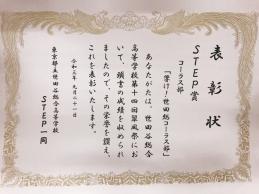 表彰状
STEP賞
コーラス部
「響け!世田総コーラス部」
あなたがたは、世田谷総合
高等学校第十四回翠風祭にお
いて、頭書の成績を収められ
ましたので、その栄誉を讃え、
これを表彰いたします。
令和三年 九月二十一日
東京都立世田谷総合高等学校
STEP一同